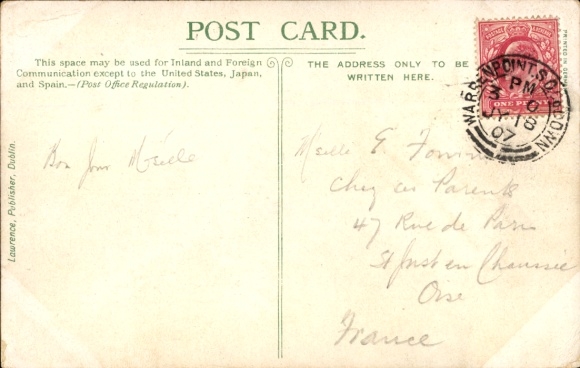 POST CARD.
This space may be used for Inland and Foreign
Communication except to the United States, Japan,
and Spain.—(Post Office Regulation).
THE ADDRESS ONLY TO BE
WRITTEN HERE.
PRINTED IN
ONE PENNY
WARRENPOINT. S.O. Co DOWN
PM
JY 18
07
Bon Jour Melle
Melle E.
Chez ses Parents
47 Rue de Paris
St Just en Chaussée
Oise
France
Lawrence, Publisher, Dublin.